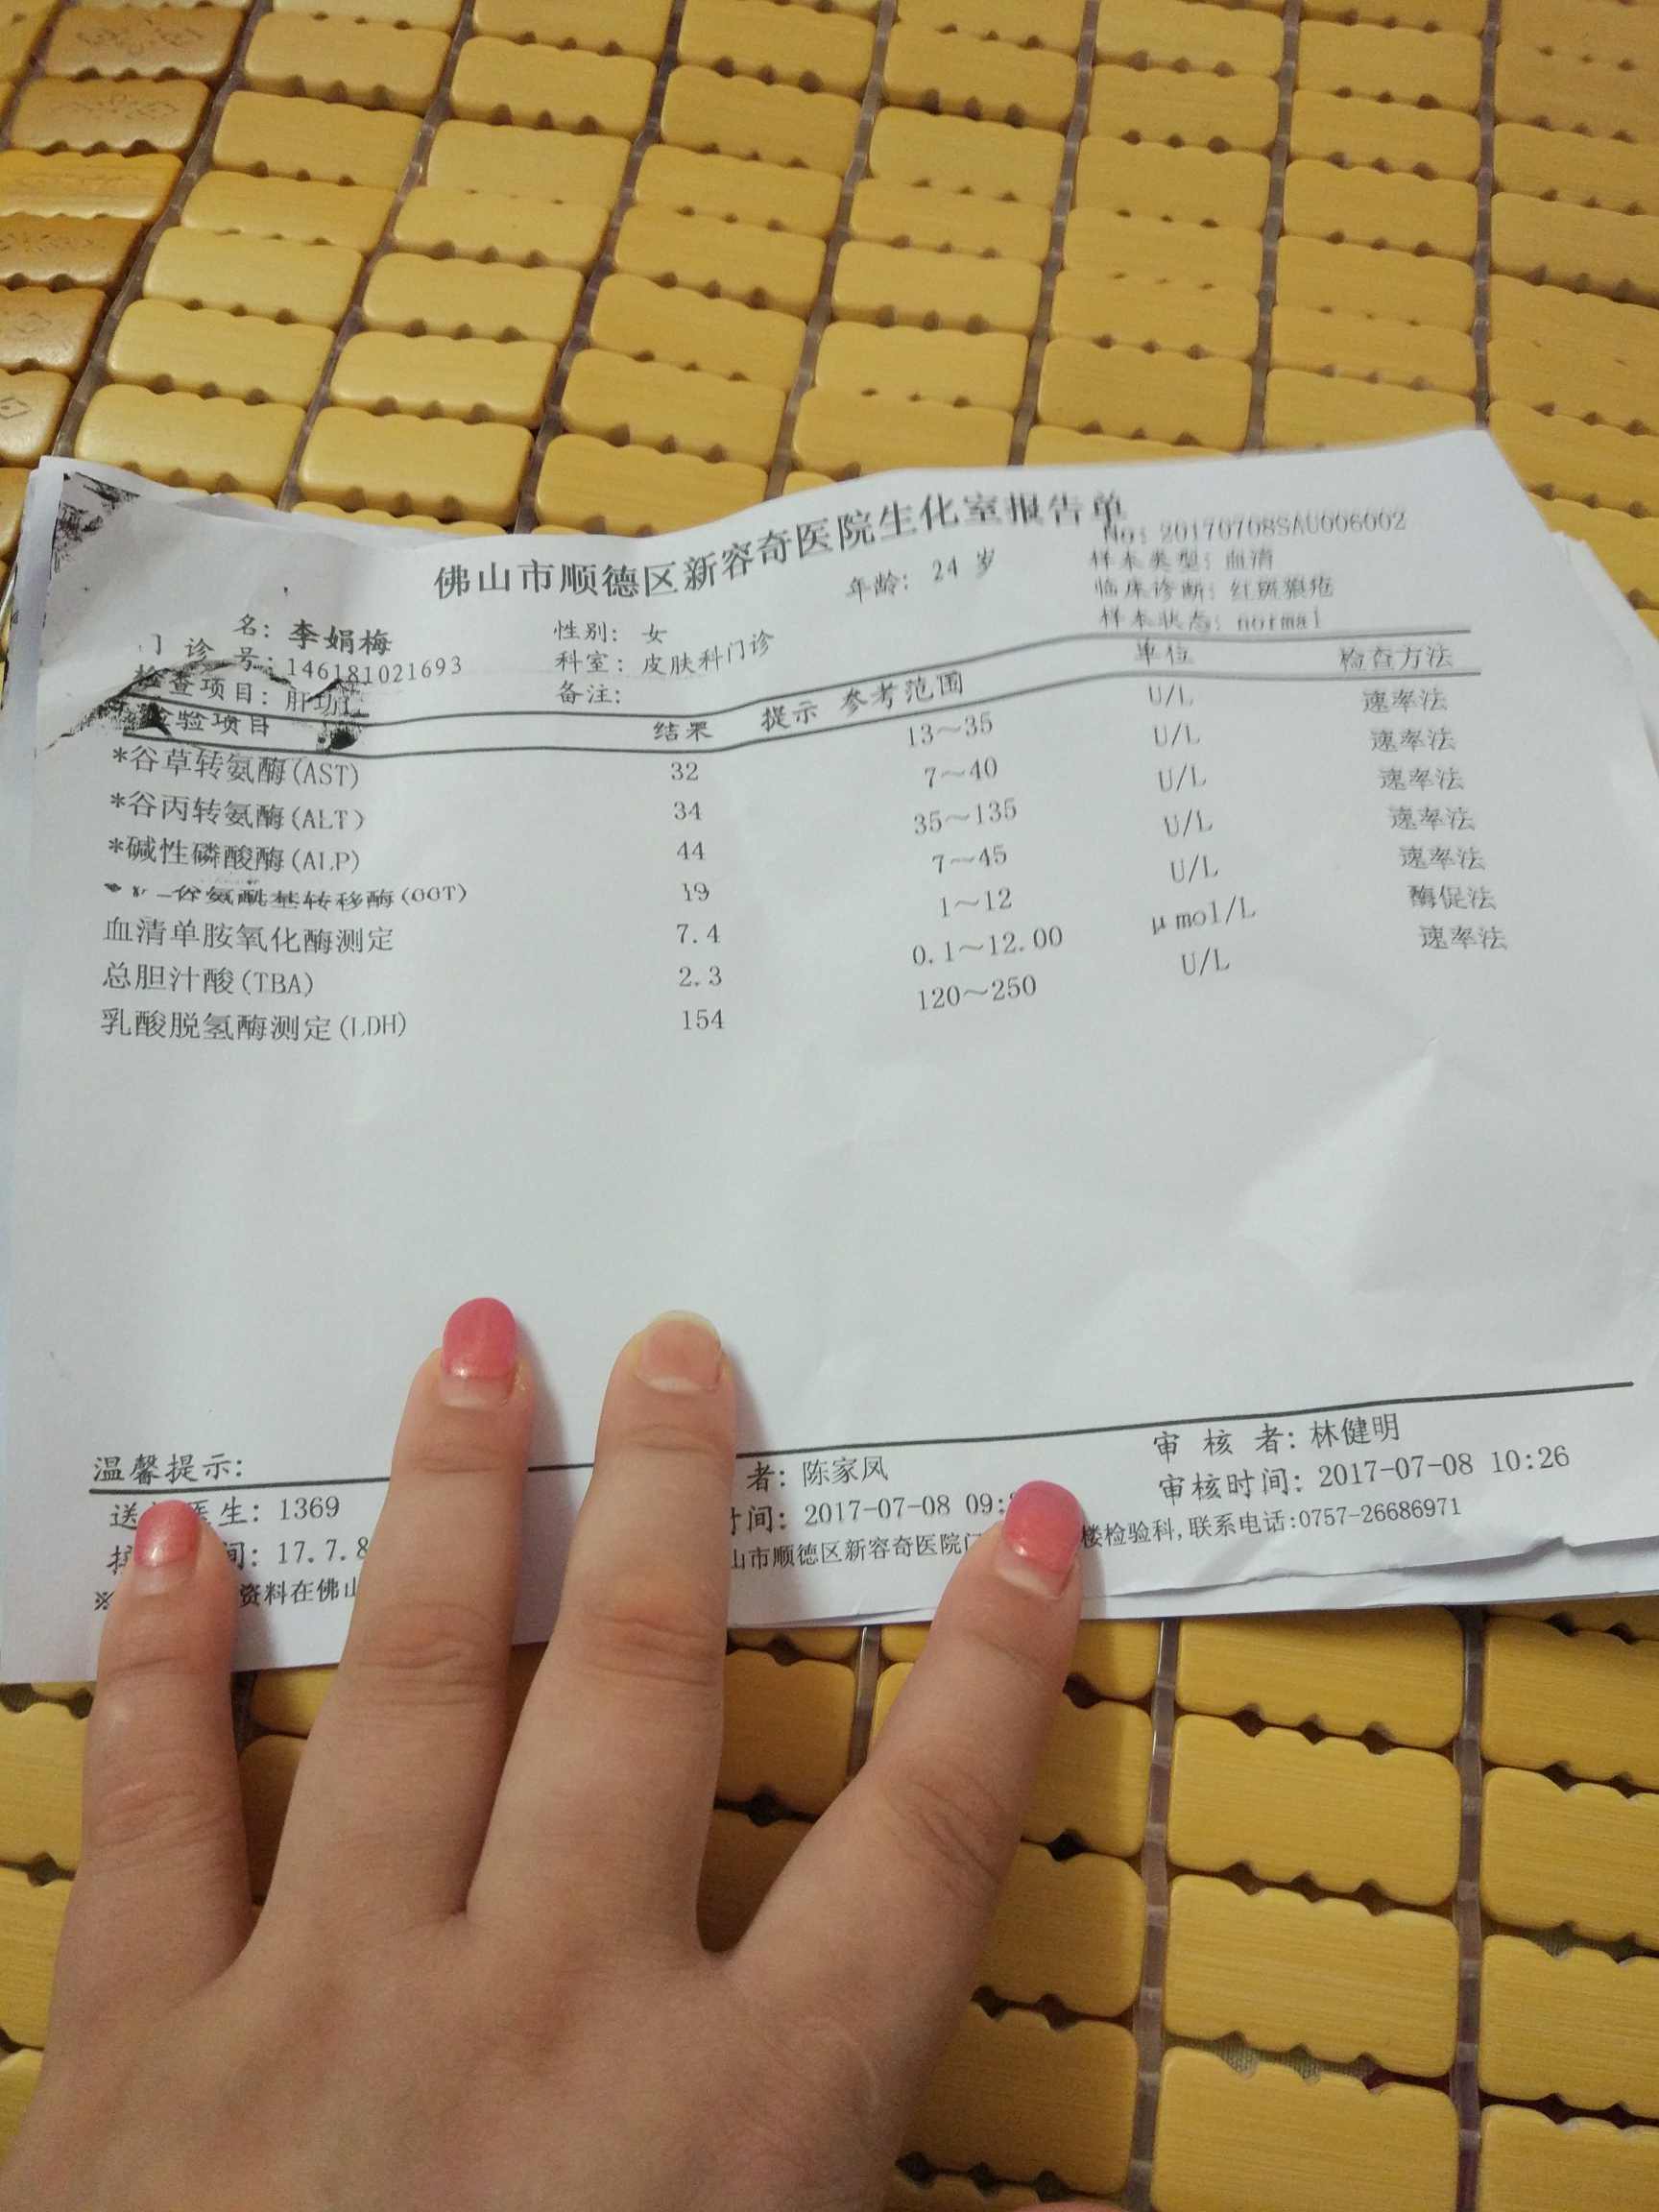 佛山市顺德区新容奇医院生化室报告单
No: 20170708SAU006002
名: 李娟梅 性别: 女 年龄: 24 岁 样本类型: 血清
门诊号: 146181021693 科室: 皮肤科门诊 临床诊断: 红斑狼疮
检查项目: 肝功 备注: 样本状态: normal
验项目 结果 提示 参考范围 单位 检查方法
*谷草转氨酶(AST) 32 13~35 U/L 速率法
*谷丙转氨酶(ALT) 34 7~40 U/L 速率法
*碱性磷酸酶(ALP) 44 35~135 U/L 速率法
谷氨酰基转移酶(GGT) 19 7~45 U/L 速率法
血清单胺氧化酶测定 7.4 1~12 U/L 速率法
总胆汁酸(TBA) 2.3 0.1~12.00 μmol/L 酶促法
乳酸脱氢酶测定(LDH) 154 120~250 U/L 速率法
温馨提示:
送 医生: 1369 者: 陈家凤 审核者: 林健明
间: 17.7.8 时间: 2017-07-08 09: 审核时间: 2017-07-08 10:26
※ 资料在佛山 山市顺德区新容奇医院门 楼检验科,联系电话:0757-26686971